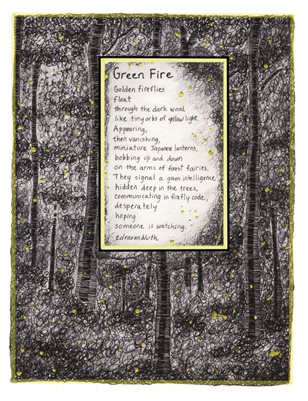 Green Fire
Golden fireflies
float
through the dark wood
like tiny orbs of yellow light.
Appearing,
then vanishing,
miniature Japanese lanterns,
bobbing up and down
on the arms of forest fairies.
They signal a
intelligence
hidden deep in the trees,
communicating in firefly code,
desperately
hoping
someone is watching.
edrosenbluth